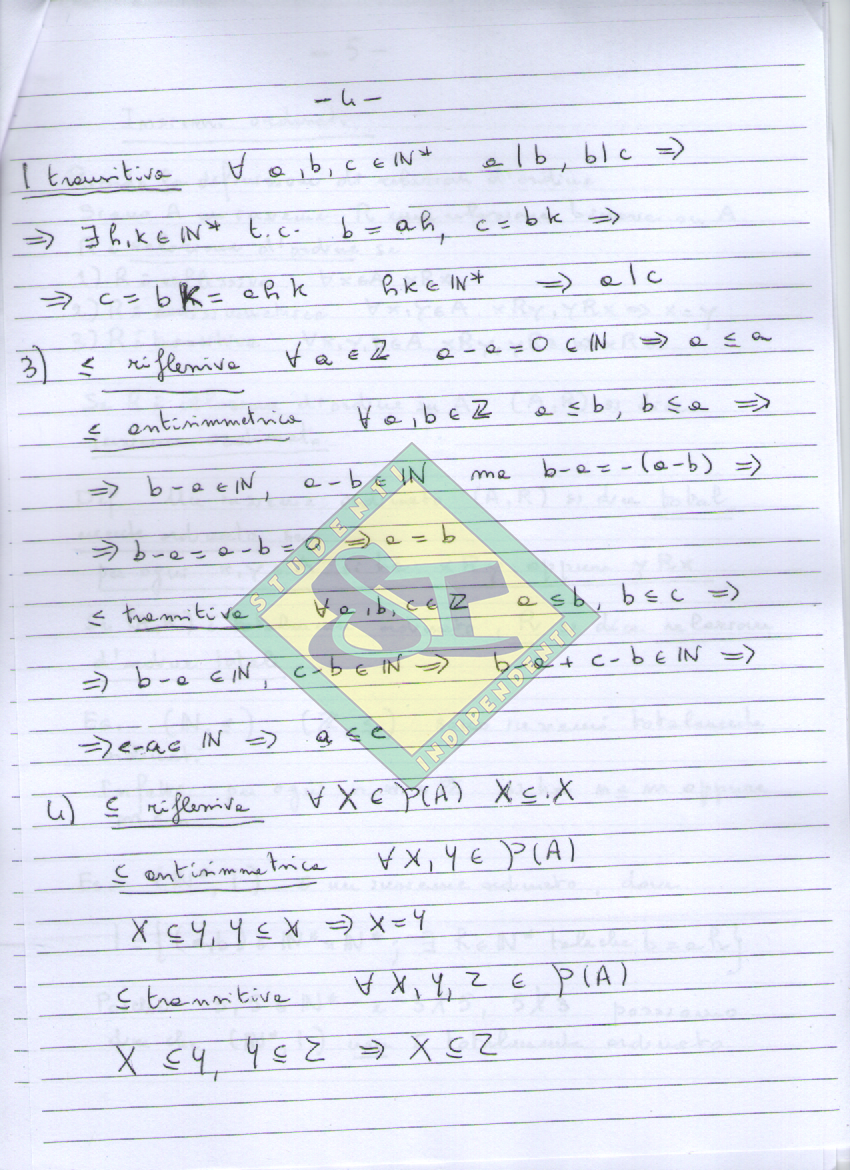 - 4 -
| transitiva ∀ a, b, c ∈ ℕ* a | b, b | c ⇒
⇒ ∃ h, k ∈ ℕ* t.c. b = ah, c = bk ⇒
⇒ c = bk = ahk hk ∈ ℕ* ⇒ a | c
3) ≤ riflessiva ∀ a ∈ ℤ a - a = 0 ∈ ℕ ⇒ a ≤ a
≤ antisimmetrica ∀ a, b ∈ ℤ a ≤ b, b ≤ a ⇒
⇒ b - a ∈ ℕ, a - b ∈ ℕ ma b - a = -(a - b) ⇒
⇒ b - a = a - b = 0 ⇒ a = b
≤ transitiva ∀ a, b, c ∈ ℤ a ≤ b, b ≤ c ⇒
⇒ b - a ∈ ℕ, c - b ∈ ℕ ⇒ b - a + c - b ∈ ℕ ⇒
⇒ c - a ∈ ℕ ⇒ a ≤ c
4) ⊆ riflessiva ∀ X ∈ P(A) X ⊆ X
⊆ antisimmetrica ∀ X, Y ∈ P(A)
X ⊆ Y, Y ⊆ X ⇒ X = Y
⊆ transitiva ∀ X, Y, Z ∈ P(A)
X ⊆ Y, Y ⊆ Z ⇒ X ⊆ Z
STUDENTI
INDIPENDENTI